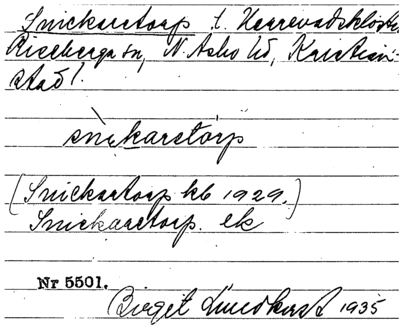 Snickaretorp t. Herrevadskloster,
Riseberga sn, N. Åsbo hd, Kristian-
stad l.
snìkaretórp
(Snickartorp kb 1929.)
Snickaretorp. ek
Nr 5501.
Birget Lundkvist 1935